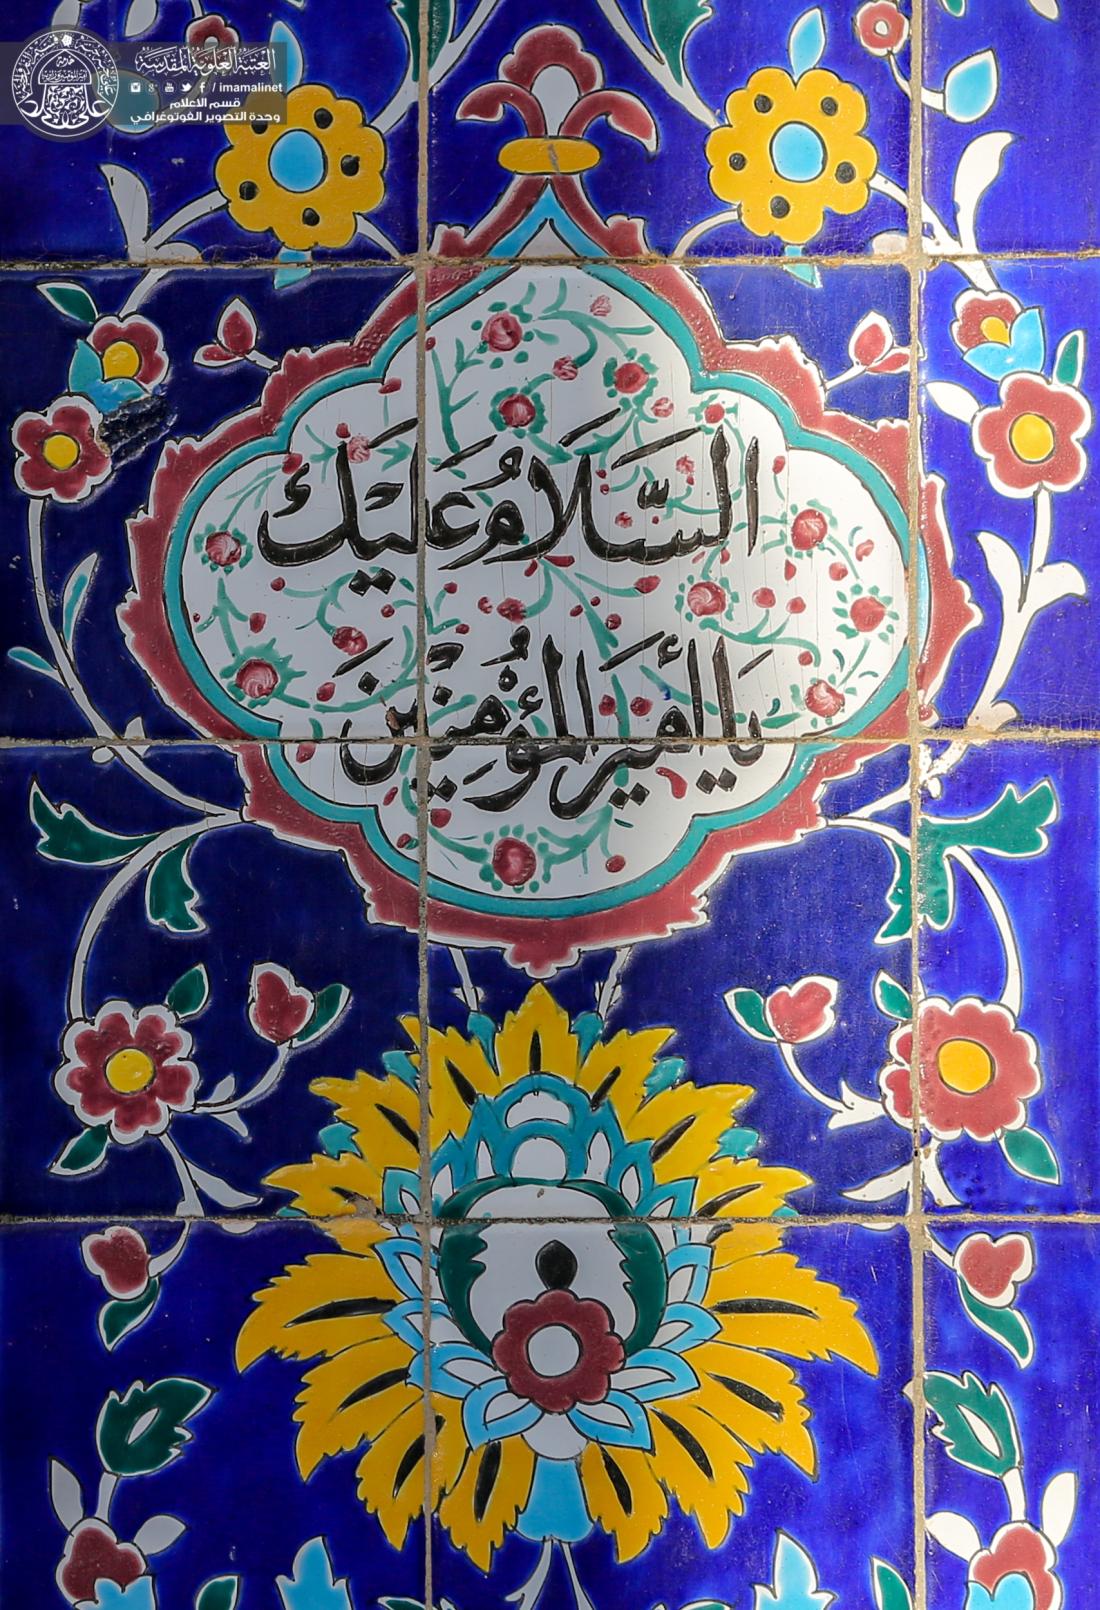 العتبة العلوية المقدسة
/ imamalinet
قسم الاعلام
وحدة التصوير الفوتوغرافي
السَّلَامُ عَلَيْكَ
يَا أَمِيْرَ الْمُؤْمِنِيْنَ